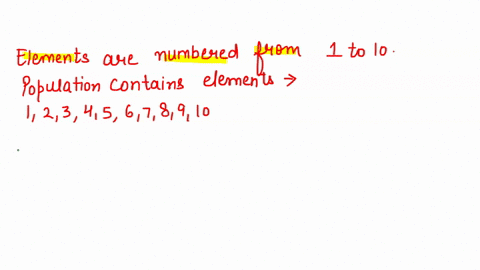 Elements are numbered from 1 to 10.
Population contains elements →
1, 2, 3, 4, 5, 6, 7, 8, 9, 10